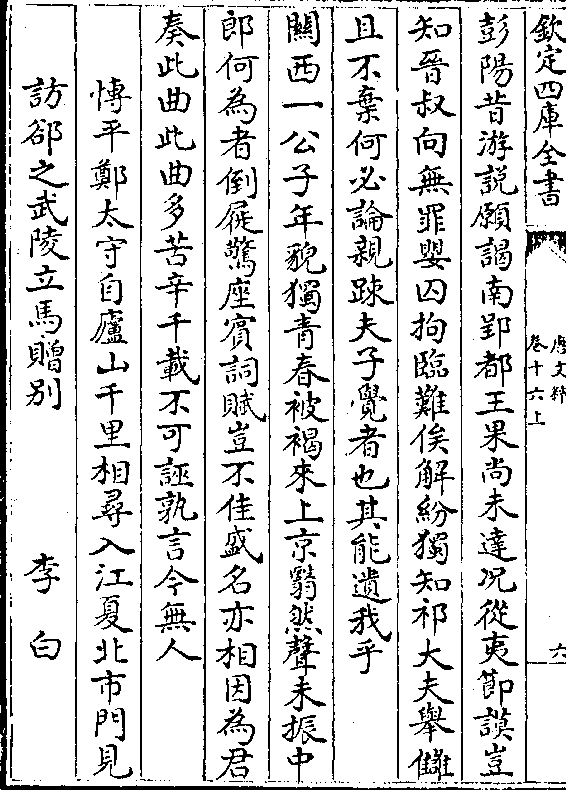 欽定四庫全書
唐文粹
卷十六上
六
彭陽昔游説願謁南郢都王果尚未達况從夷節謨豈
知晉叔向無罪嬰囚拘臨難俟解紛獨知祁大夫舉讎
且不棄何必論親踈夫子覺者也其能遺我乎
關西一公子年貌獨青春被褐來上京翳然聲未振中
郎何為者倒屣驚座賓詞賦豈不佳盛名亦相因為君
奏此曲此曲多苦辛千載不可誣孰言今無人
博平鄭太守自廬山千里相尋入江夏北市門見
訪郤之武陵立馬贈別
李白